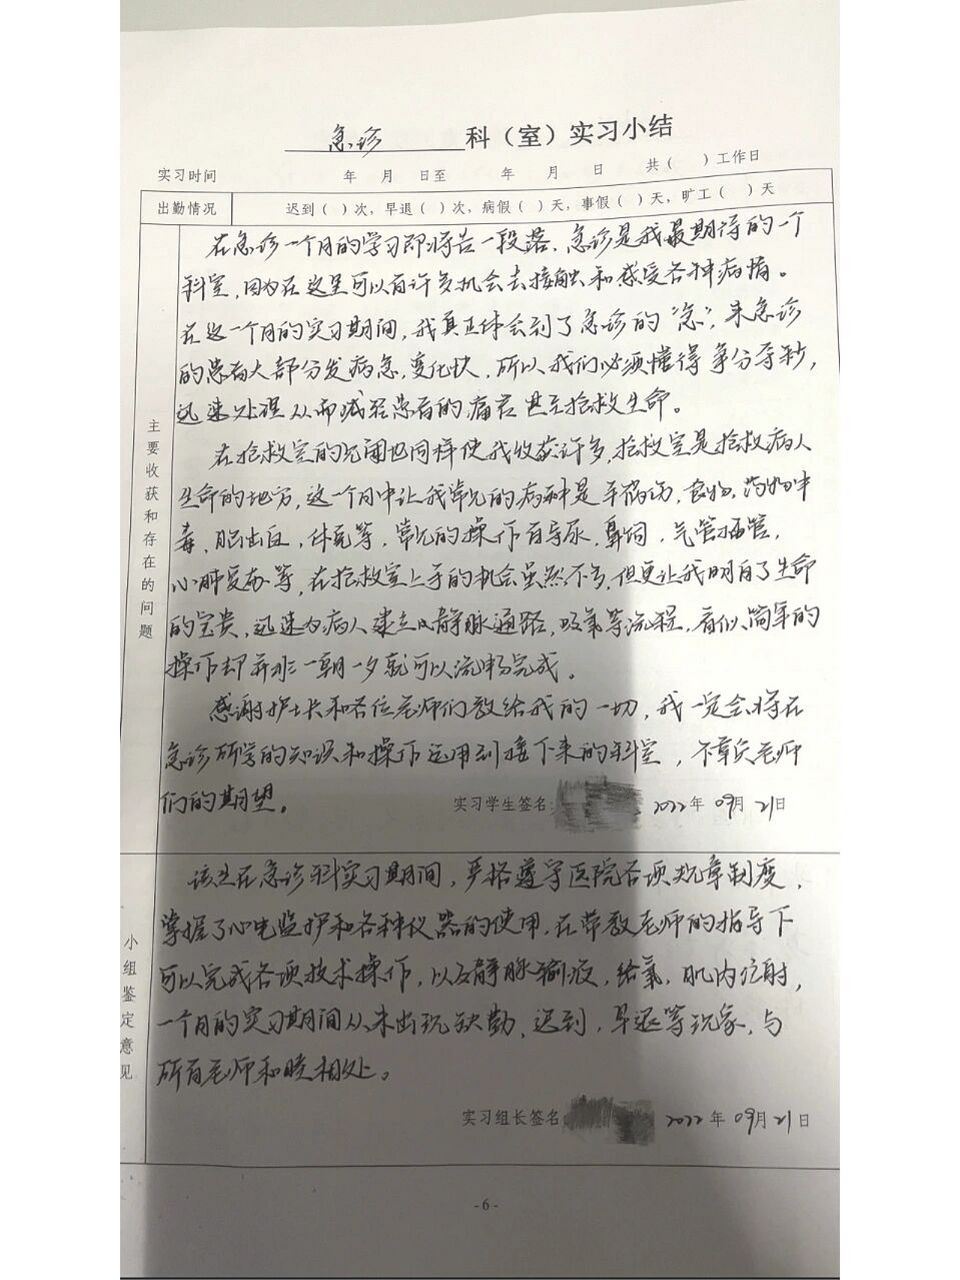 急诊 科（室）实习小结
实习时间 年 月 日至 年 月 日 共（ ）工作日
出勤情况 迟到（ ）次，早退（ ）次，病假（ ）天，事假（ ）天，旷工（ ）天
主要收获和存在的问题
在急诊一个月的学习即将告一段落，急诊是我最期待的一个
科室，因为在这里可以有许多机会去接触和感受各种病情。
在这一个月的实习期间，我真正体会到了急诊的“急”，来急诊
的患者大部分发病急，变化快，所以我们必须懂得争分夺秒，
迅速处理从而减轻患者的痛苦甚至抢救生命。
在抢救室的见闻也同样使我收获许多，抢救室是抢救病人
生命的地方，这一个月中让我常见的病种是车祸伤，食物，药物中
毒，脑出血，休克等，常见的操作有导尿，鼻饲，气管插管，
心肺复苏等，在抢救室上手的机会虽然不多，但更让我明白了生命
的宝贵，迅速为病人建立静脉通路，吸氧等流程，看似简单的
操作却并非一朝一夕就可以流畅完成。
感谢护士长和各位老师们教给我的一切，我一定会将在
急诊所学的知识和操作运用到接下来的科室，不辜负老师
们的期望。
实习学生签名： 2022年 09月 21日
小组鉴定意见
该生在急诊科实习期间，严格遵守医院各项规章制度，
掌握了心电监护和各种仪器的使用，在带教老师的指导下
可以完成各项技术操作，以及静脉输液，给氧，肌内注射，
一个月的实习期间从未出现缺勤，迟到，早退等现象，与
所有老师和睦相处。
实习组长签名： 2022年 09月 21日
- 6 -